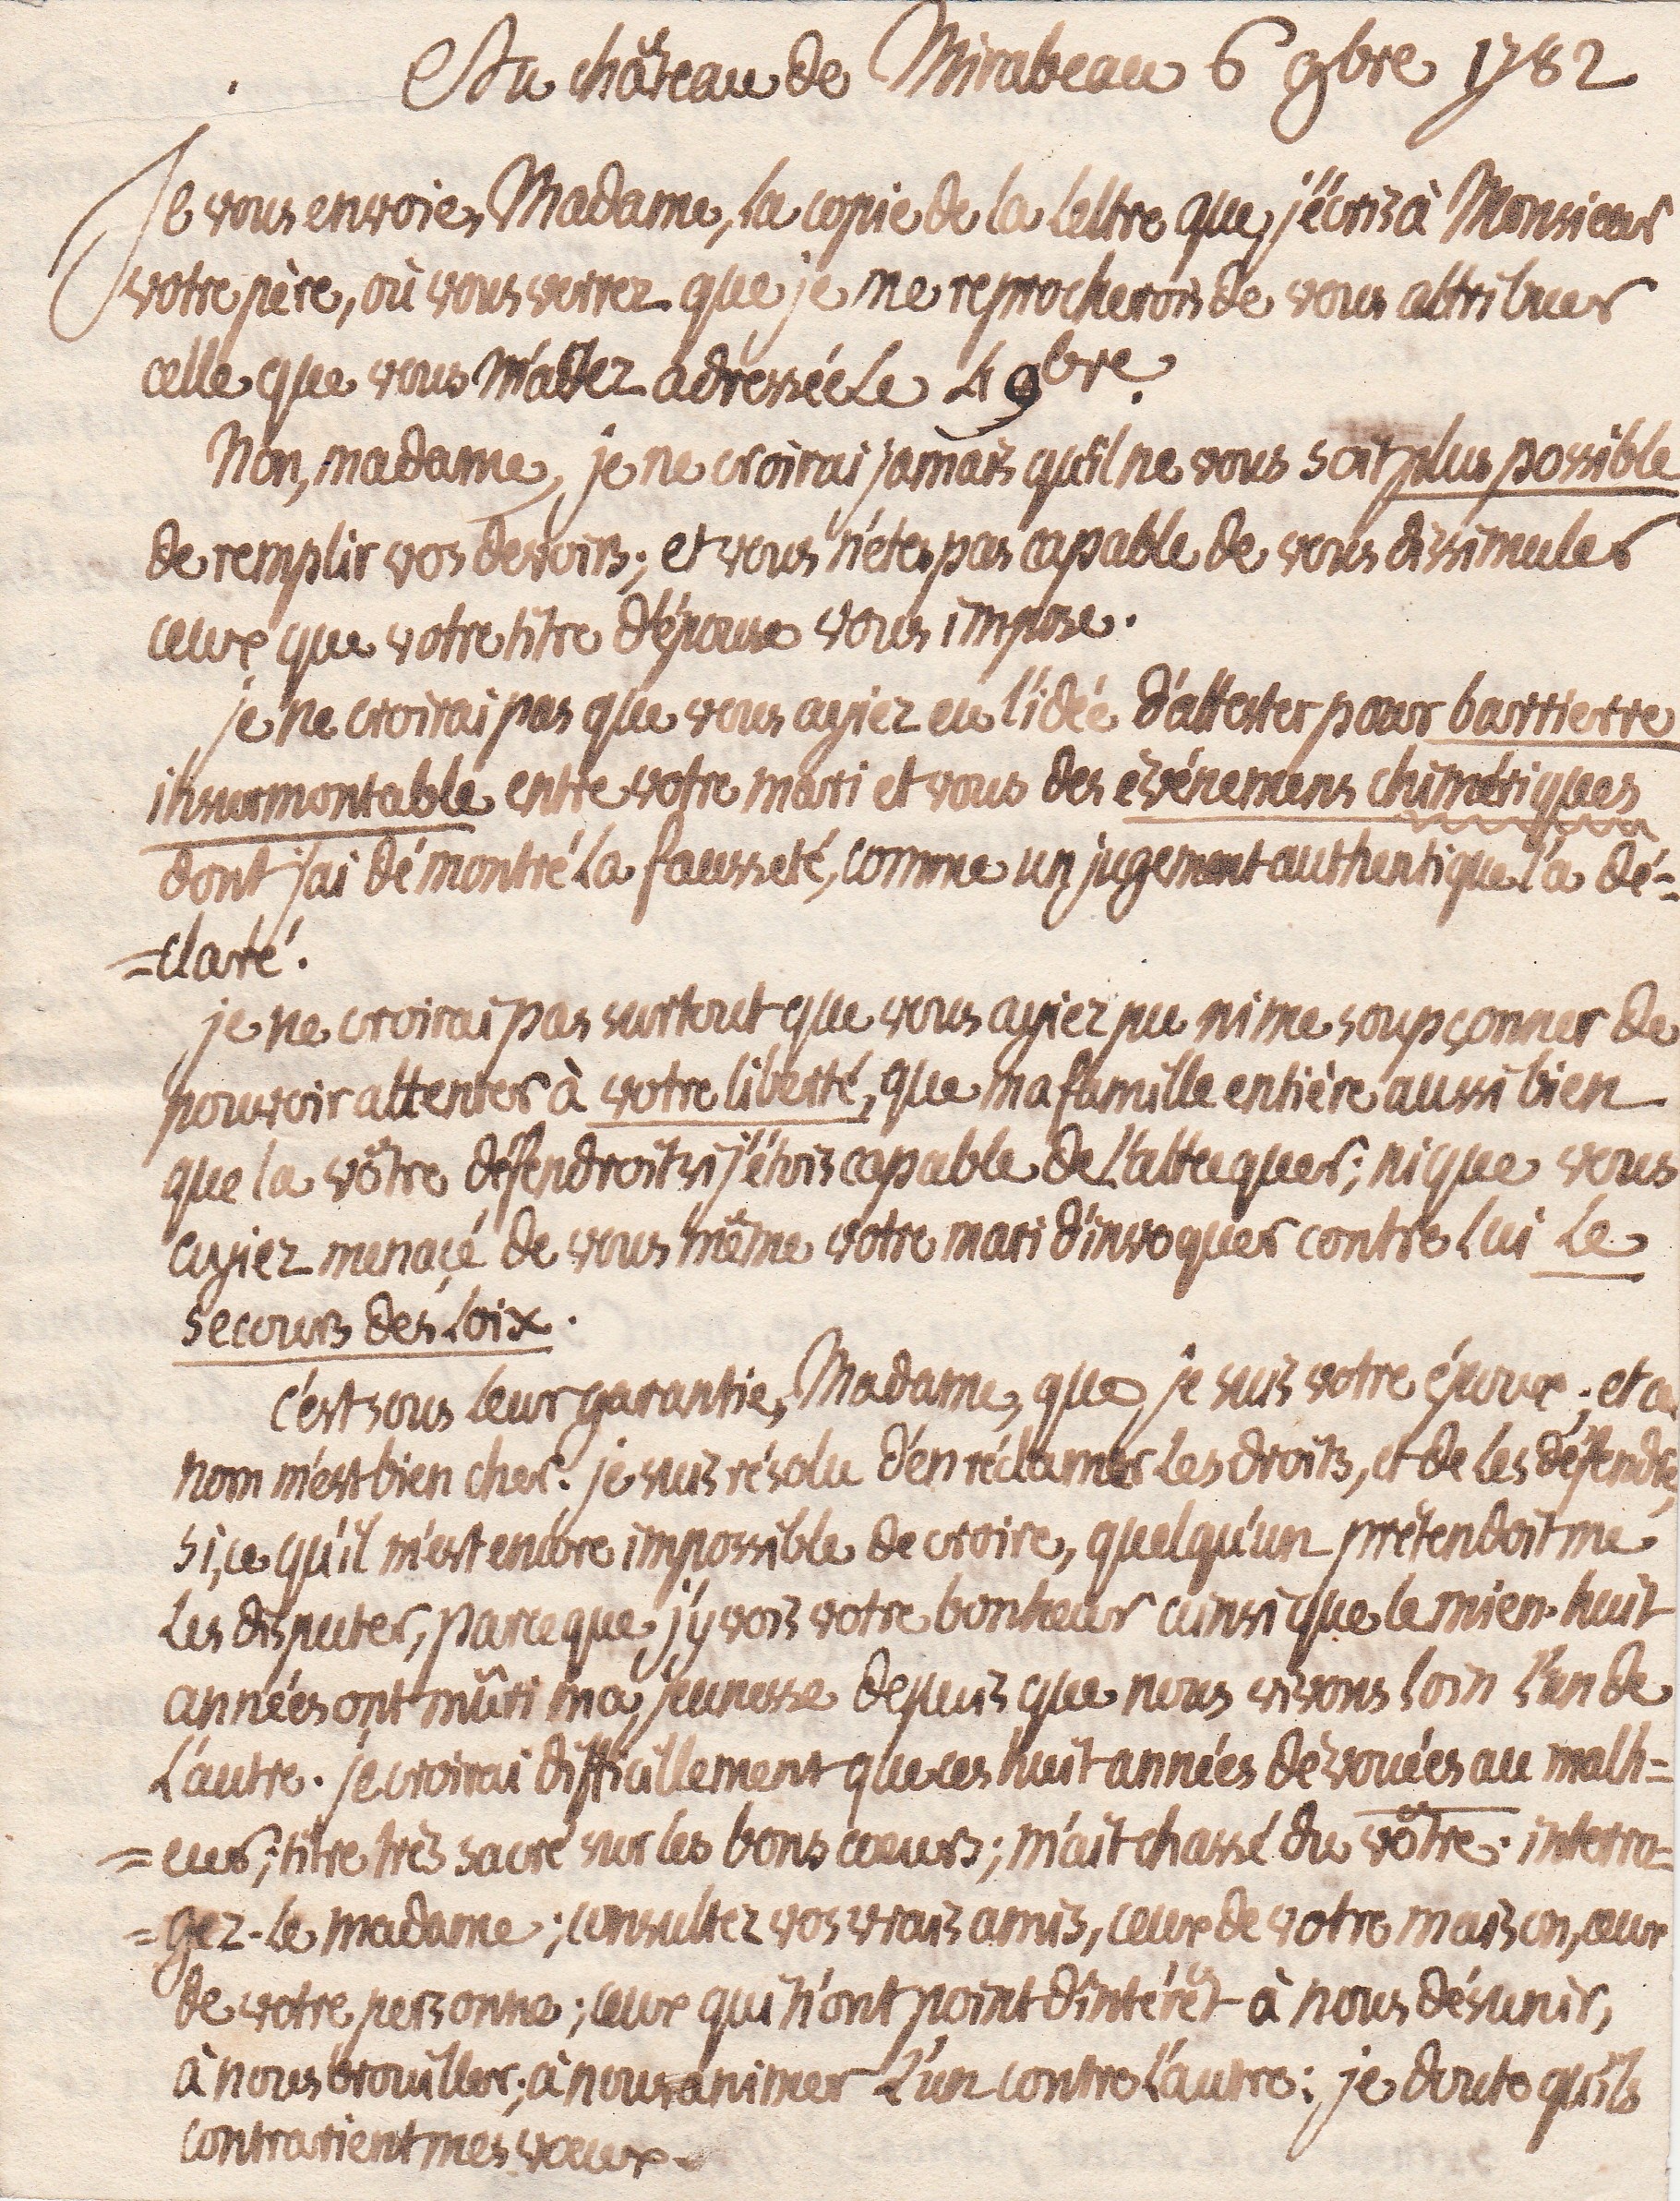 Au château de Mirabeau 6 9bre 1782
Je vous envoie, Madame, la copie de la lettre que j'écris à Monsieur
votre père, où vous verrez que je me reprocherois de vous attribuer
celle que vous m'avez adressée le 4 9bre.
Non, madame, je ne croirai jamais qu'il ne vous soit plus possible
de remplir vos devoirs; et vous n'étes pas capable de vous dissimuler
ceux que votre titre d'épouse vous impose.
je ne croirai pas que vous ayiez eu l'idée d'attester pour barrierre
insurmontable entre votre mari et vous des évènemens chimériques
dont j'ai démontré la fausseté, comme un jugement authentique l'a dé=
=claré.
je ne croirai pas surtout que vous ayiez pu mime soupçonner de
pouvoir attenter à votre liberté, que ma famille entière aussi bien
que la vôtre défendroit si j'étois capable de l'attaquer; ni que vous
ayiez menaçé de vous même votre mari d'invoquer contre lui le
secours des loix.
c'est sous leur garantie, Madame, que je suis votre époux; et ce
nom m'est bien cher. je suis résolu d'en réclamer les droits, et de les défendre,
si, ce qu'il m'est encore impossible de croire, quelqu'un prétendoit me
les disputer, parce que j'y vois votre bonheur ainsi que le mien. huit
années ont mûri ma jeunesse depuis que nous vivons loin l'un de
l'autre. je croirai difficillement que ces huit années dévouées au malh=
=eur; titre très sacré sur les bons cœurs; m'ait chassé du vôtre. interro=
=gez-le madame; consultez vos vrais amis, ceux de votre maison, ceux
de votre personne; ceux qui n'ont point d'intérêt à nous désunir,
à nous brouiller; à nous animer l'un contre l'autre: je doute qu'ils
contrarient mes vœux.